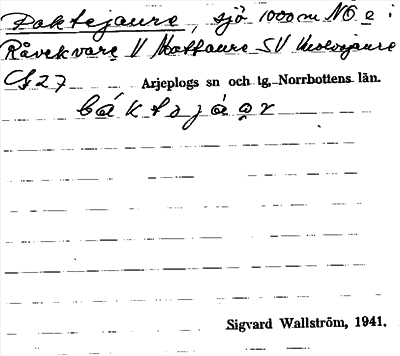 Paktejaure, sjö 1000 m NO e i
Råvekvare V Mattaure SV
Cf 27 Arjeplogs sn och tg, Norrbottens län.
báktsjáųr
Sigvard Wallström, 1941.